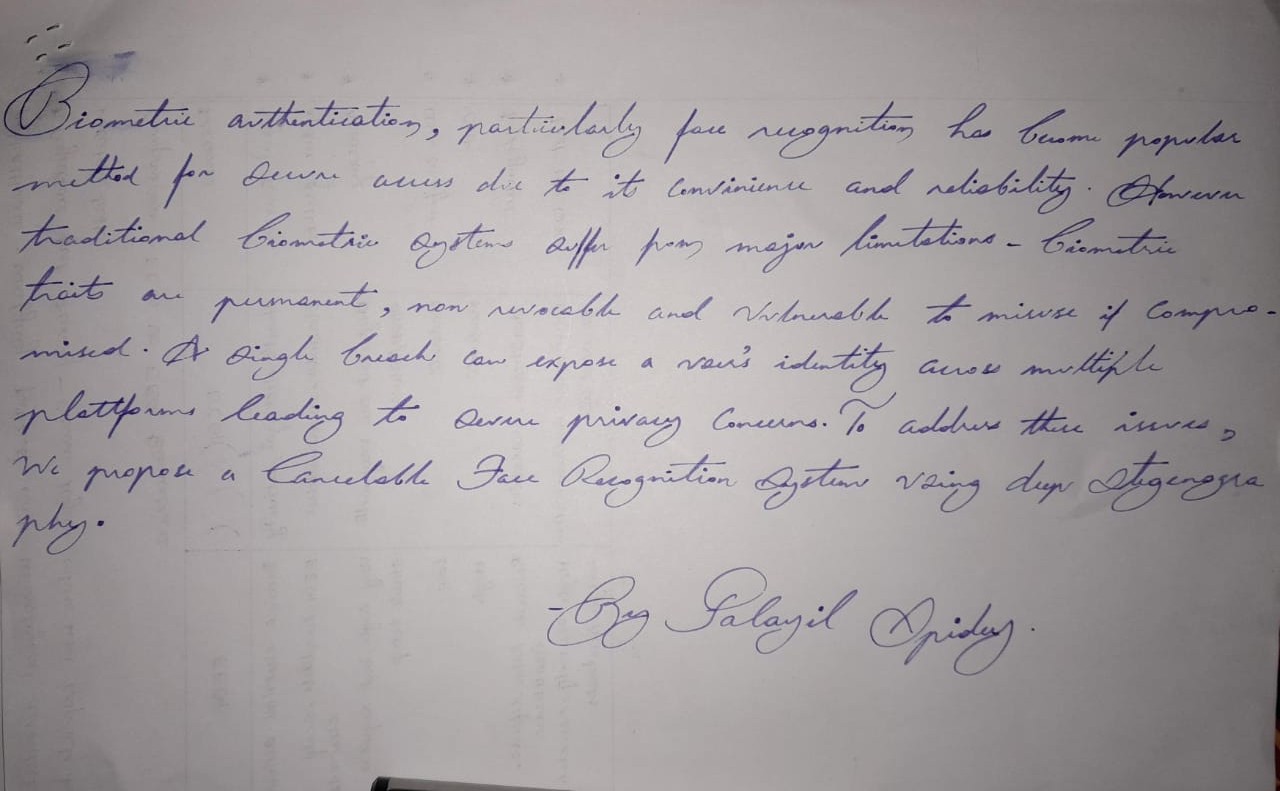 Biometric authentication, particularly face recognition has become popular
method for secure access due to its convinience and reliability. However
traditional biometric systems suffer from major limitations - biometric
traits are permanent, non revocable and vulnerable to misuse if compro-
mised. A single breach can expose a user's identity across multiple
plattforms leading to severe privacy concerns. To address these issues,
We propose a Cancelable Face Recognition System using deep Stegenogra
phy.
- By Palayil Spidey.